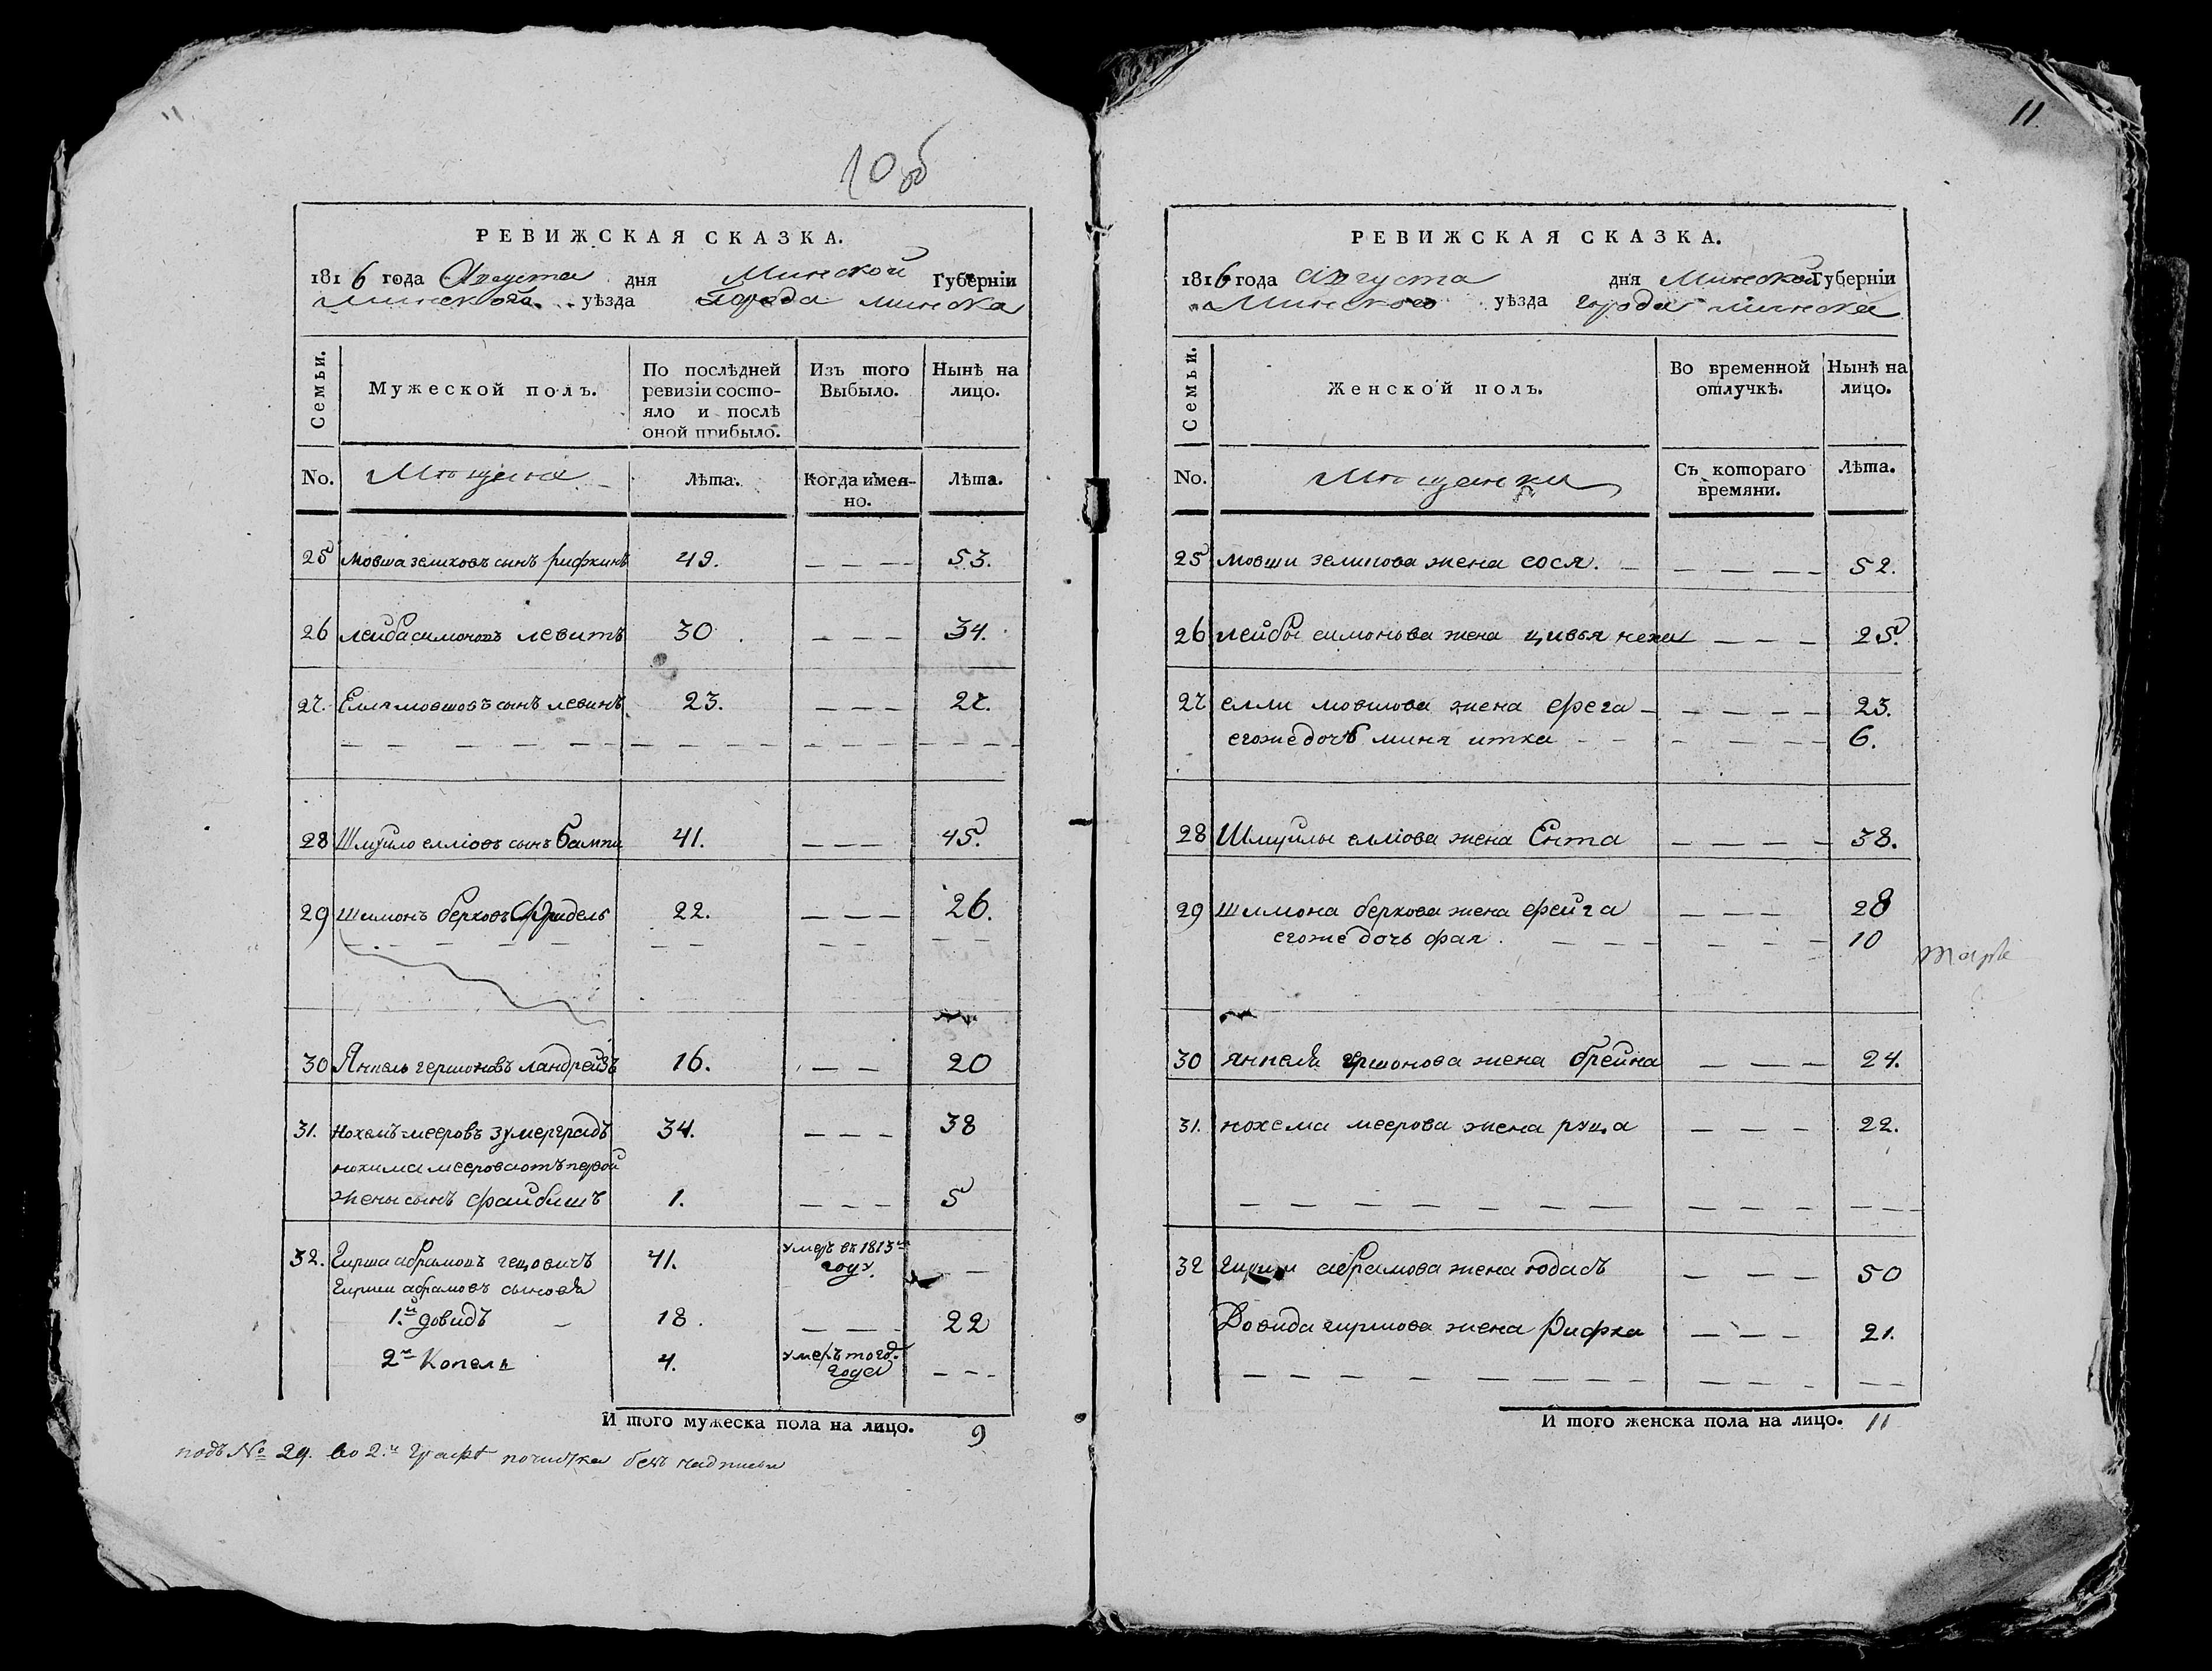 10 об
РЕВИЖСКАЯ СКАЗКА.
1816 года Августа дня Минской Губерніи
Минского уѣзда города минска
Семьи.
Мужеской полъ.
По послѣдней ревизіи состояло и послѣ оной прибыло.
Изъ того Выбыло.
Нынѣ на лицо.
No. Мещане лѣта. Когда имен-но. лѣта.
25 мовша зелиховъ сынъ рифкинъ 49. — — — 53.
26 лейба симоновъ левитъ 30. — — — 34.
27. Елля мовшовъ сынъ левинъ 23. — — — 27.
28 Шмуйло елліовъ сынъ 41. — — — 45.
29 шимонъ берковъ Фридель 22. — — — 26.
30 Янкель гершоновъ 16. — — 20
31. Нохемъ мееровъ зумерградъ 34. — — — 38
нохима меерова отъ первой
жены сынъ файбишъ 1. — — — 5
32. Гирша абрамовъ гецовичъ 41. умеръ въ 1813м году. — —
Гирши абрамовъ сыновѣя
1.й довидъ — 18. — — — 22
2й Копель 4. умеръ того года — — -
И того мужеска пола на лицо. 9
подъ № 29. во 2.й графѣ почистка безъ надписи
11
РЕВИЖСКАЯ СКАЗКА.
1816 года Августа дня Минской Губерніи
Минского уѣзда города минска
Семьи.
Женской полъ.
Во временной отлучкѣ.
Нынѣ на лицо.
No. Мещанки Съ котораго времяни. лѣта.
25 мовши зеликова жена сося. — — — — 52.
26 лейбы симонова жена цивья неха — — — 25.
27 елли мовшова жена фрега — — — — — 23.
егоже дочъ миня итка — — — — — 6.
28 Шмуйлы елліова жена Ента — — — — 38.
29 шимона беркова жена фейга — — — 28
егоже дочь фая. — — — — — — 10
30 янкеля гершонова жена брейна — — — 24.
31. нохема меерова жена — — — 22.
32 Гирши абрамова жена юдасъ — — — 50
Довида гиршова жена Рифка — — — 21.
И того женска пола на лицо. 11